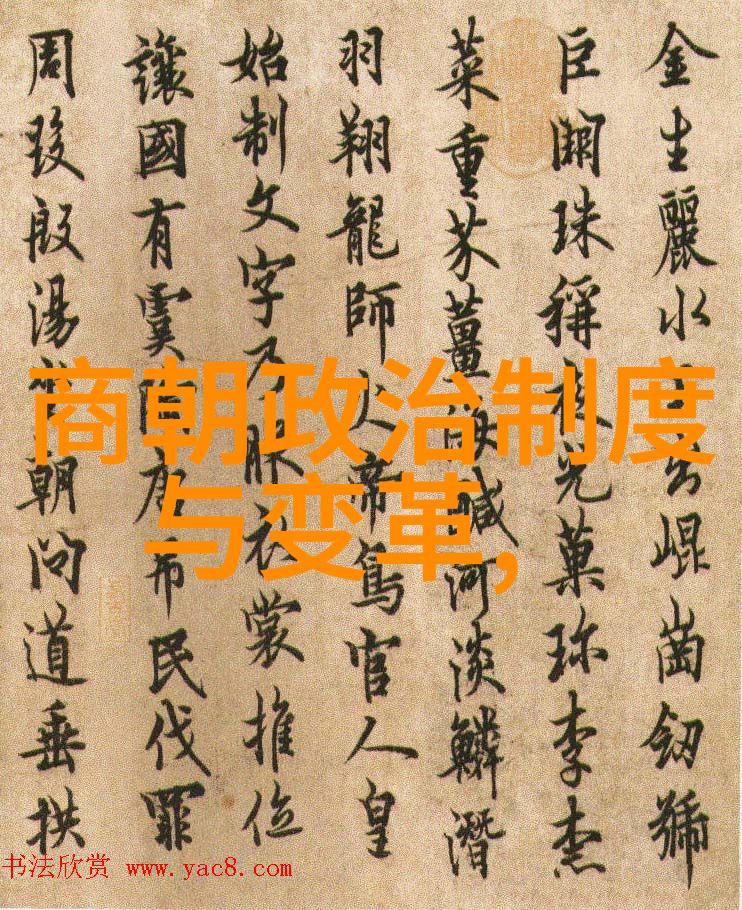 金生麗水玉出崐崗釼號
巨闕珠稱夜光菓珎李柰
菜重芥薑海醎河淡鱗潛
羽翔龍師火帝鳥官人皇
始制文字乃服衣裳推位
讓國有虞陶唐弔民伐罪
周發殷湯坐朝問道垂拱
商朝政治制度
与变革,
书法欣赏 www.yac8.com